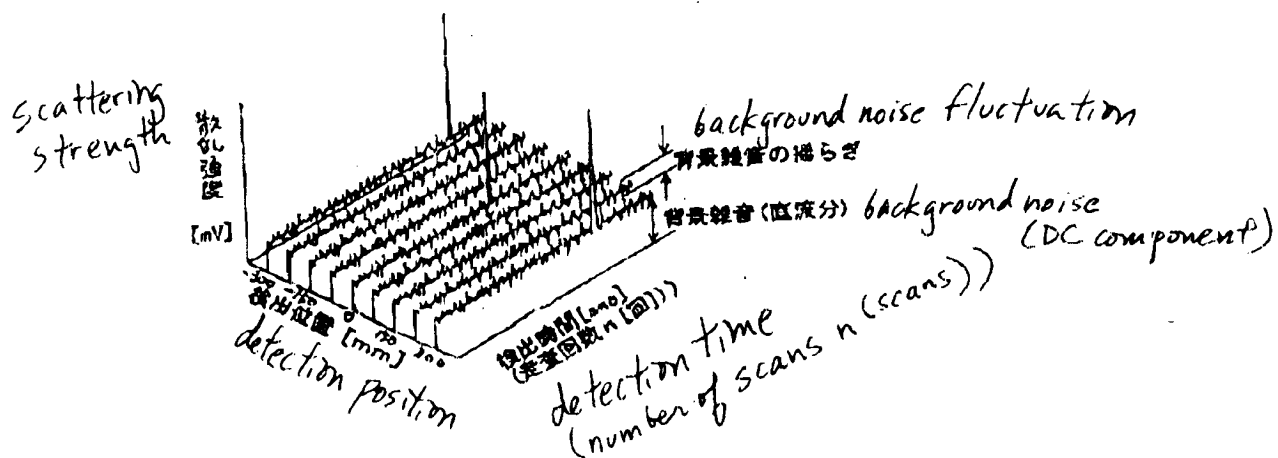 scattering
strength
散乱強度
[mV]
background noise fluctuation
背景雑音の揺らぎ
背景雑音(直流分)
background noise
(DC component)
0
検出位置 [mm]
detection position
検出時間
(走査回数 n [回]))
detection time
(number of scans n (scans))